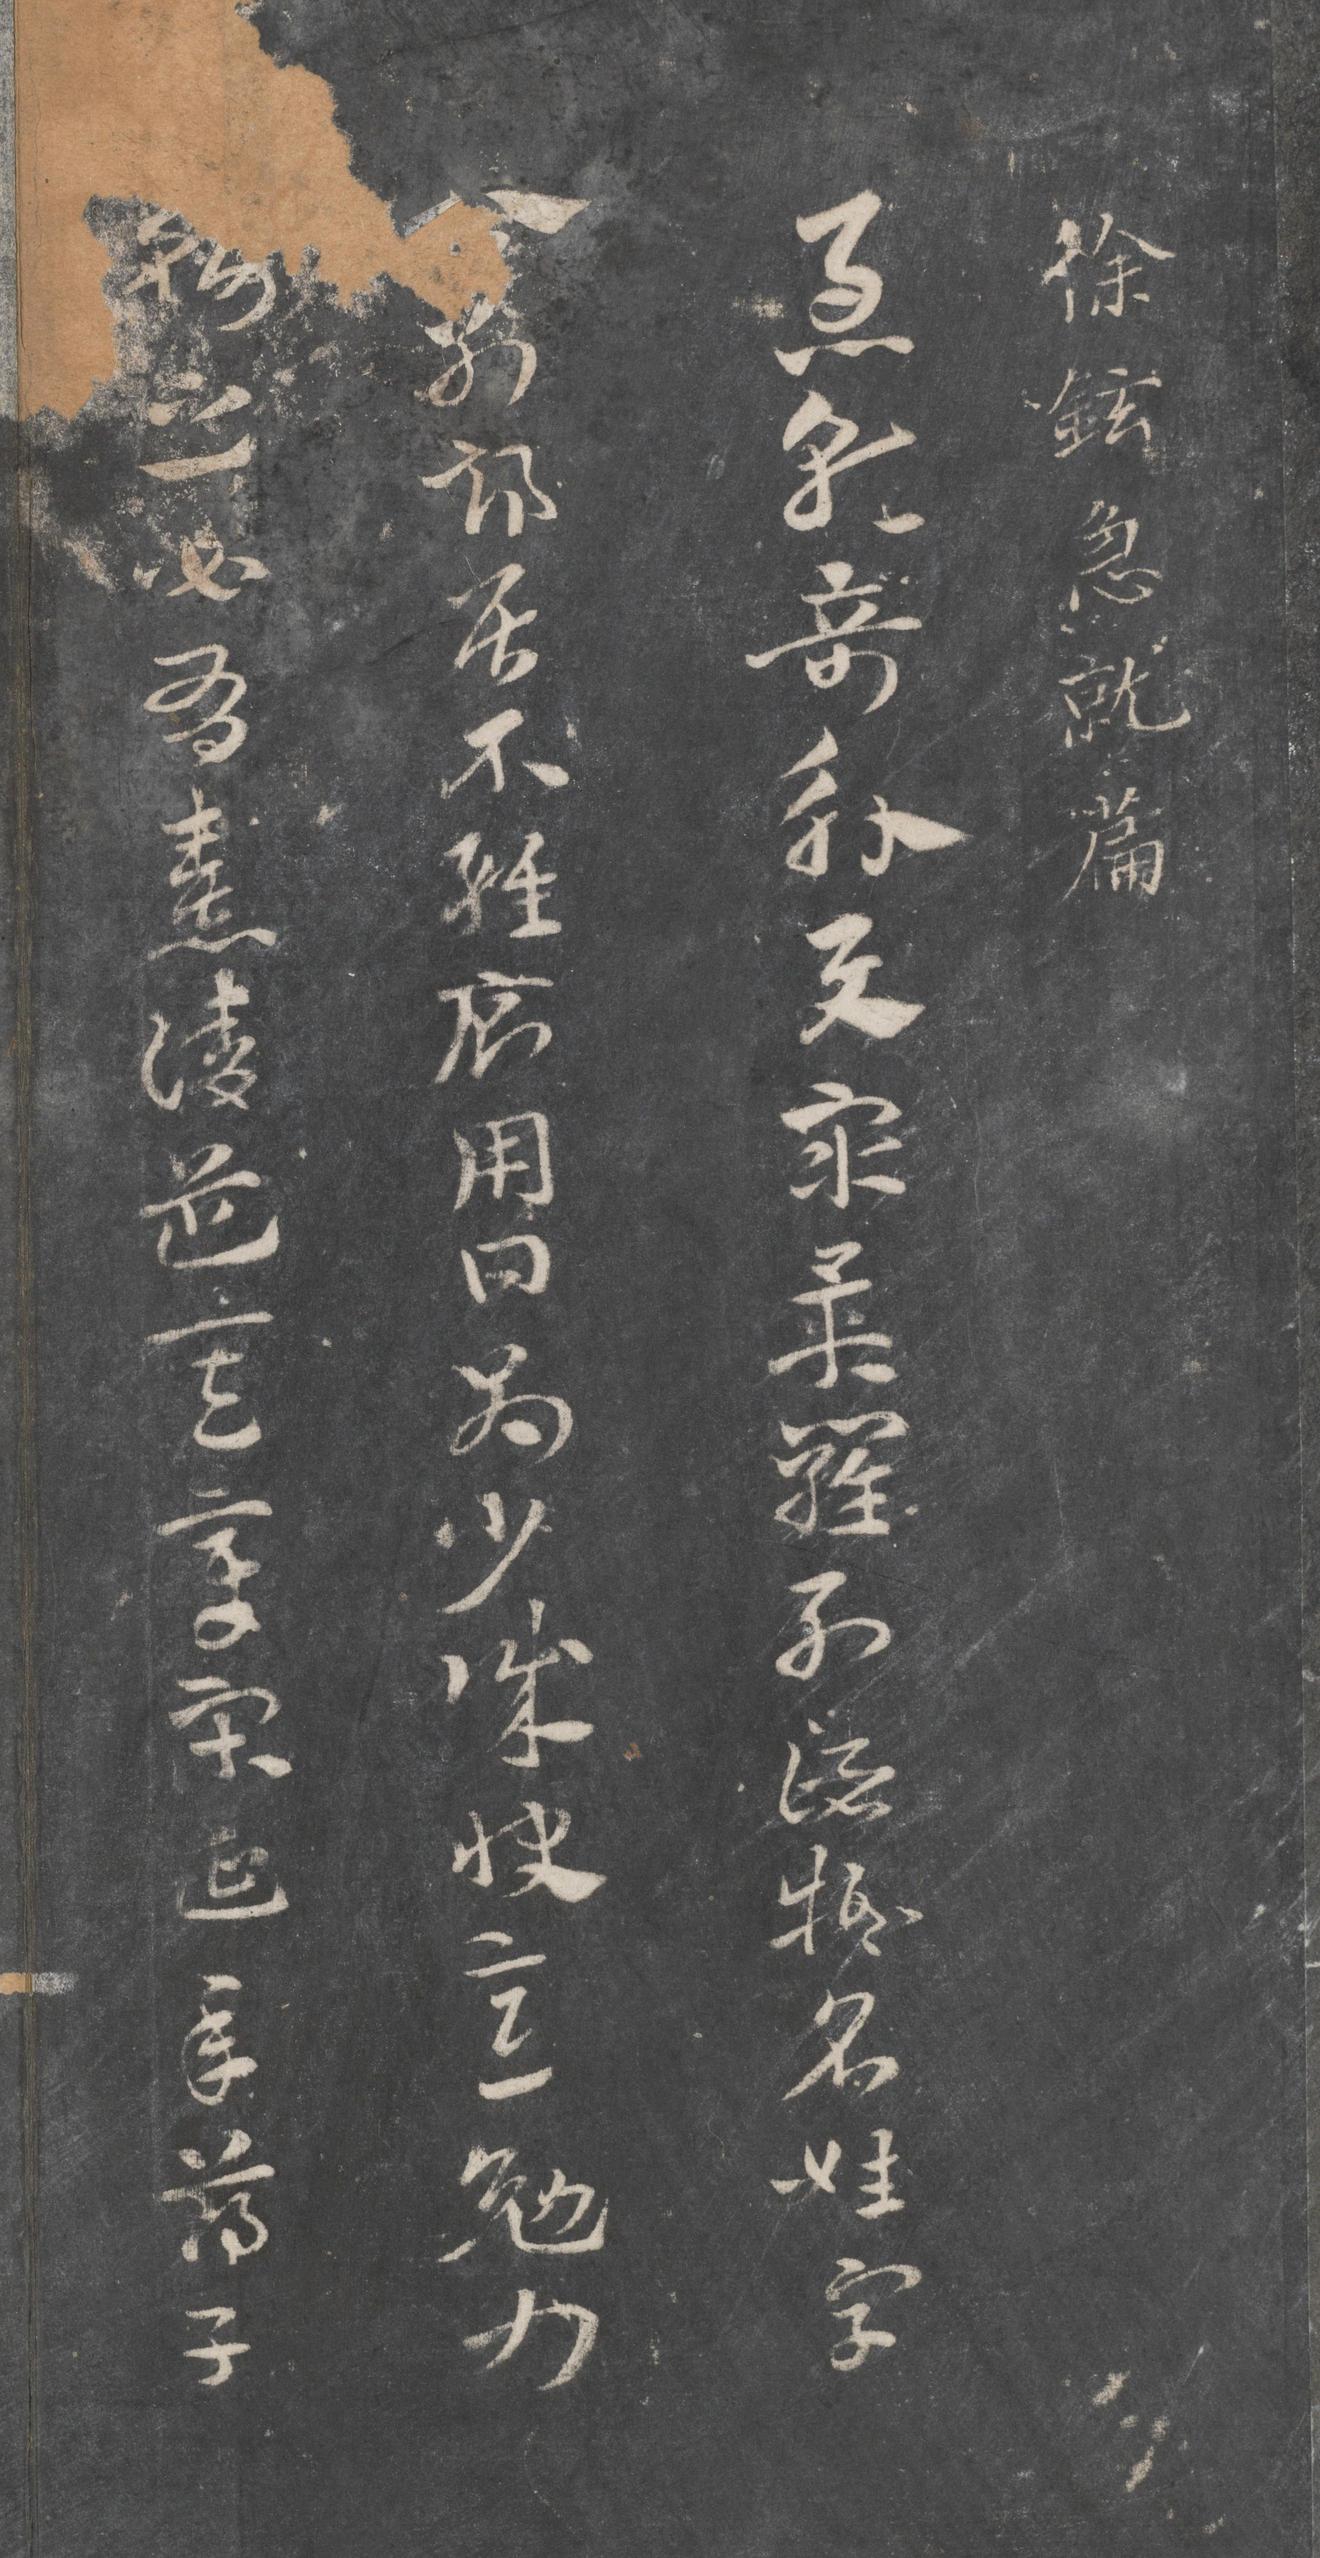 徐鉉急就篇
急就奇觚與衆異羅列諸物名姓字
分別部居不雜廁用日約少誠快意勉力
務之必有憙請道其章宋延年鄭子